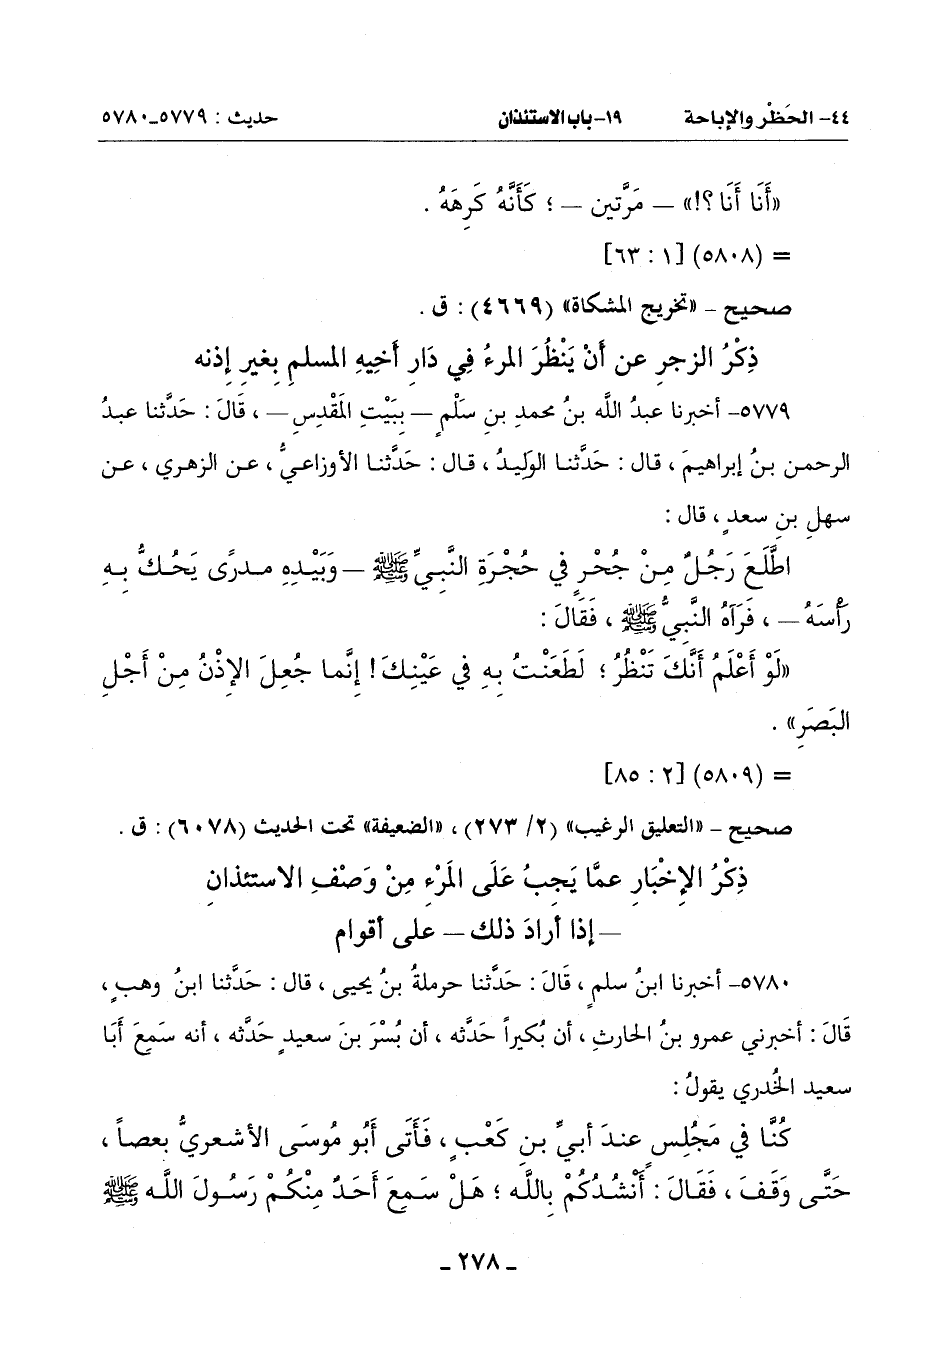 ٤٤- الحَظْر والإباحة ١٩-باب الاستئذان حديث : ٥٧٧٩-٥٧٨٠
«أَنَا أَنَا ؟!» – مَرَّتين – ؛ كَأَنَّهُ كَرِهَهُ .
= (٥٨٠٨) [١ : ٦٣]
صحيح - «تخريج المشكاة» (٤٦٦٩) : ق .
ذِكْرُ الزجرِ عن أَنْ يَنْظُرَ المرءُ فِي دَارِ أَخيهِ المسلمِ بغيرِ إِذنه
٥٧٧٩- أخبرنا عبدُ الله بنُ محمدِ بنِ سَلْمٍ – ببَيْتِ المَقْدِسِ – ، قَالَ : حَدَّثنا عبدُ
الرحمن بنُ إبراهيمَ ، قال : حَدَّثنا الوَلِيدُ ، قال : حَدَّثنا الأوزاعيُّ ، عن الزهري ، عن
سهلِ بنِ سعدٍ ، قال :
اطَّلَعَ رَجُلٌ مِنْ جُحْرٍ في حُجْرَةِ النَّبِيِّ ﷺ – وَبَيْدِهِ مدرًى يَحُكُّ بِهِ
رَأْسَهُ – ، فَرَآهُ النَّبِيُّ ﷺ ، فَقَالَ :
«لَوْ أَعْلَمُ أَنَّكَ تَنْظُرُ ؛ لَطَعَنْتُ بِهِ في عَيْنِكَ ! إِنَّما جُعِلَ الإِذْنُ مِنْ أَجْلِ
البَصَرِ» .
= (٥٨٠٩) [٢ : ٨٥]
صحيح - «التعليق الرغيب» (٢/ ٢٧٣) ، «الضعيفة» تحت الحديث (٦٠٧٨) : ق .
ذِكْرُ الإِخْبَارِ عمَّا يَجِبُ عَلَى المَرْءِ مِنْ وَصْفِ الاستئذان
– إذا أرادَ ذلك – على أقوام
٥٧٨٠- أخبرنا ابنُ سلمٍ ، قَالَ : حَدَّثنا حرملةُ بنُ يحيى ، قال : حَدَّثنا ابنُ وهبٍ ،
قَالَ : أخبرني عمرو بنُ الحارثِ ، أن بُكيراً حَدَّثه ، أن بُسْرَ بنَ سعيدٍ حَدَّثه ، أنه سَمِعَ أَبَا
سعيد الخُدري يقولُ :
كُنَّا في مَجْلِسٍ عندَ أبيِّ بنِ كَعْبٍ ، فَأَتَى أَبُو مُوسَى الأشعريُّ بعصاً ،
حَتَّى وَقَفَ ، فَقَالَ : أَنْشُدُكُمْ بِاللَّه ؛ هَلْ سَمِعَ أَحَدٌ مِنْكُمْ رَسُولَ اللَّه ﷺ
- ٢٧٨ -